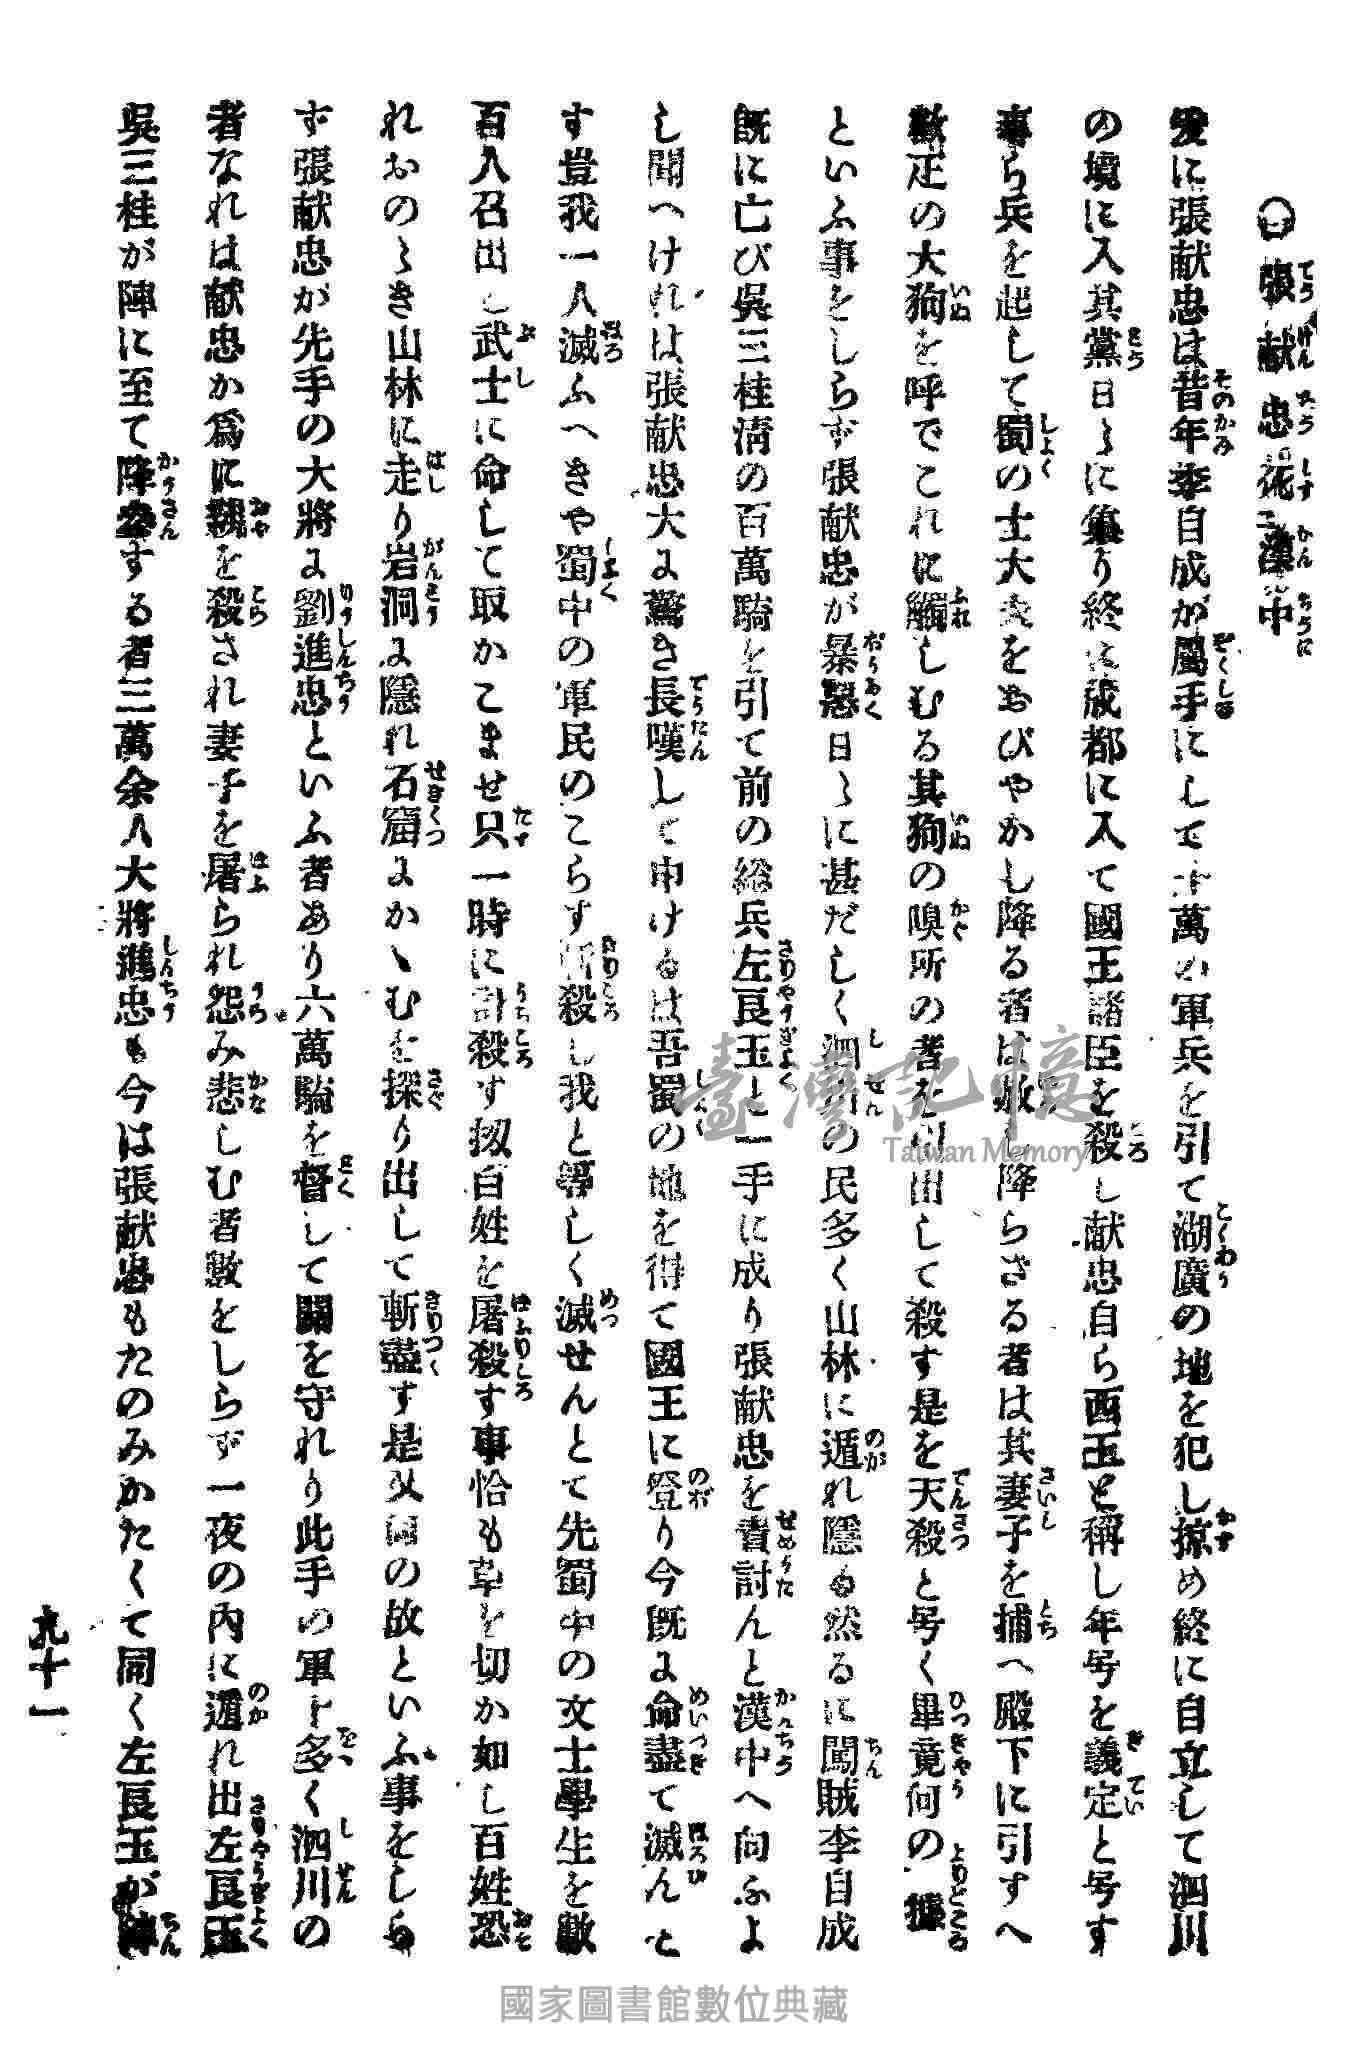 ○張献忠死漢中
爰に張献忠は昔年李自成が屬手にして十萬の軍兵を引て湖廣の地を犯し掠め終に自立して泗川
の境に入其黨日〻に集り終に成都に入て國王諸臣を殺し献忠自ら西王と稱し年号を義定と号す
専ら兵を起して蜀の士大夫をおびやかし降る者は敬し降らざる者は其妻子を捕へ殿下に引すへ
數疋の大狗を呼でこれに觸しむる其狗の嗅所の者を引出して殺す是を天殺と号く畢竟何の據
といふ事をしらず張献忠が暴惡日〻に甚だしく泗川の民多く山林に遁れ隱る然るに闖賊李自成
既に亡び吳三桂淸の百萬騎を引て前の総兵左良玉と一手に成り張献忠を責討んと漢中へ向ふよ
し聞へけれは張献忠大に驚き長嘆して申けるは吾蜀の地を得て國王に登り今既に命盡て滅んと
す豈我一人滅ふへきや蜀中の軍民のこらす斬殺し我と等しく滅せんとて先蜀中の文士學生を數
百人召出し武士に命して取かこませ只一時に討殺す扨百姓を屠殺す事恰も草を切か如し百姓恐
れおのゝき山林に走り岩洞に隱れ石窟にかゝむを探り出して斬盡す是又何の故といふ事をしら
ず張献忠が先手の大將に劉進忠といふ者あり六萬騎を督して關を守れり此手の軍卜多く泗川の
者なれは献忠か爲に親を殺され妻子を屠られ怨み悲しむ者數をしらず一夜の內に遁れ出左良玉
吳三桂が陣に至て降參する者三萬余人大將進忠も今は張献忠もたのみかたくて同く左良玉が陣
九十一
臺灣記憶
Taiwan Memory
國家圖書館數位典藏